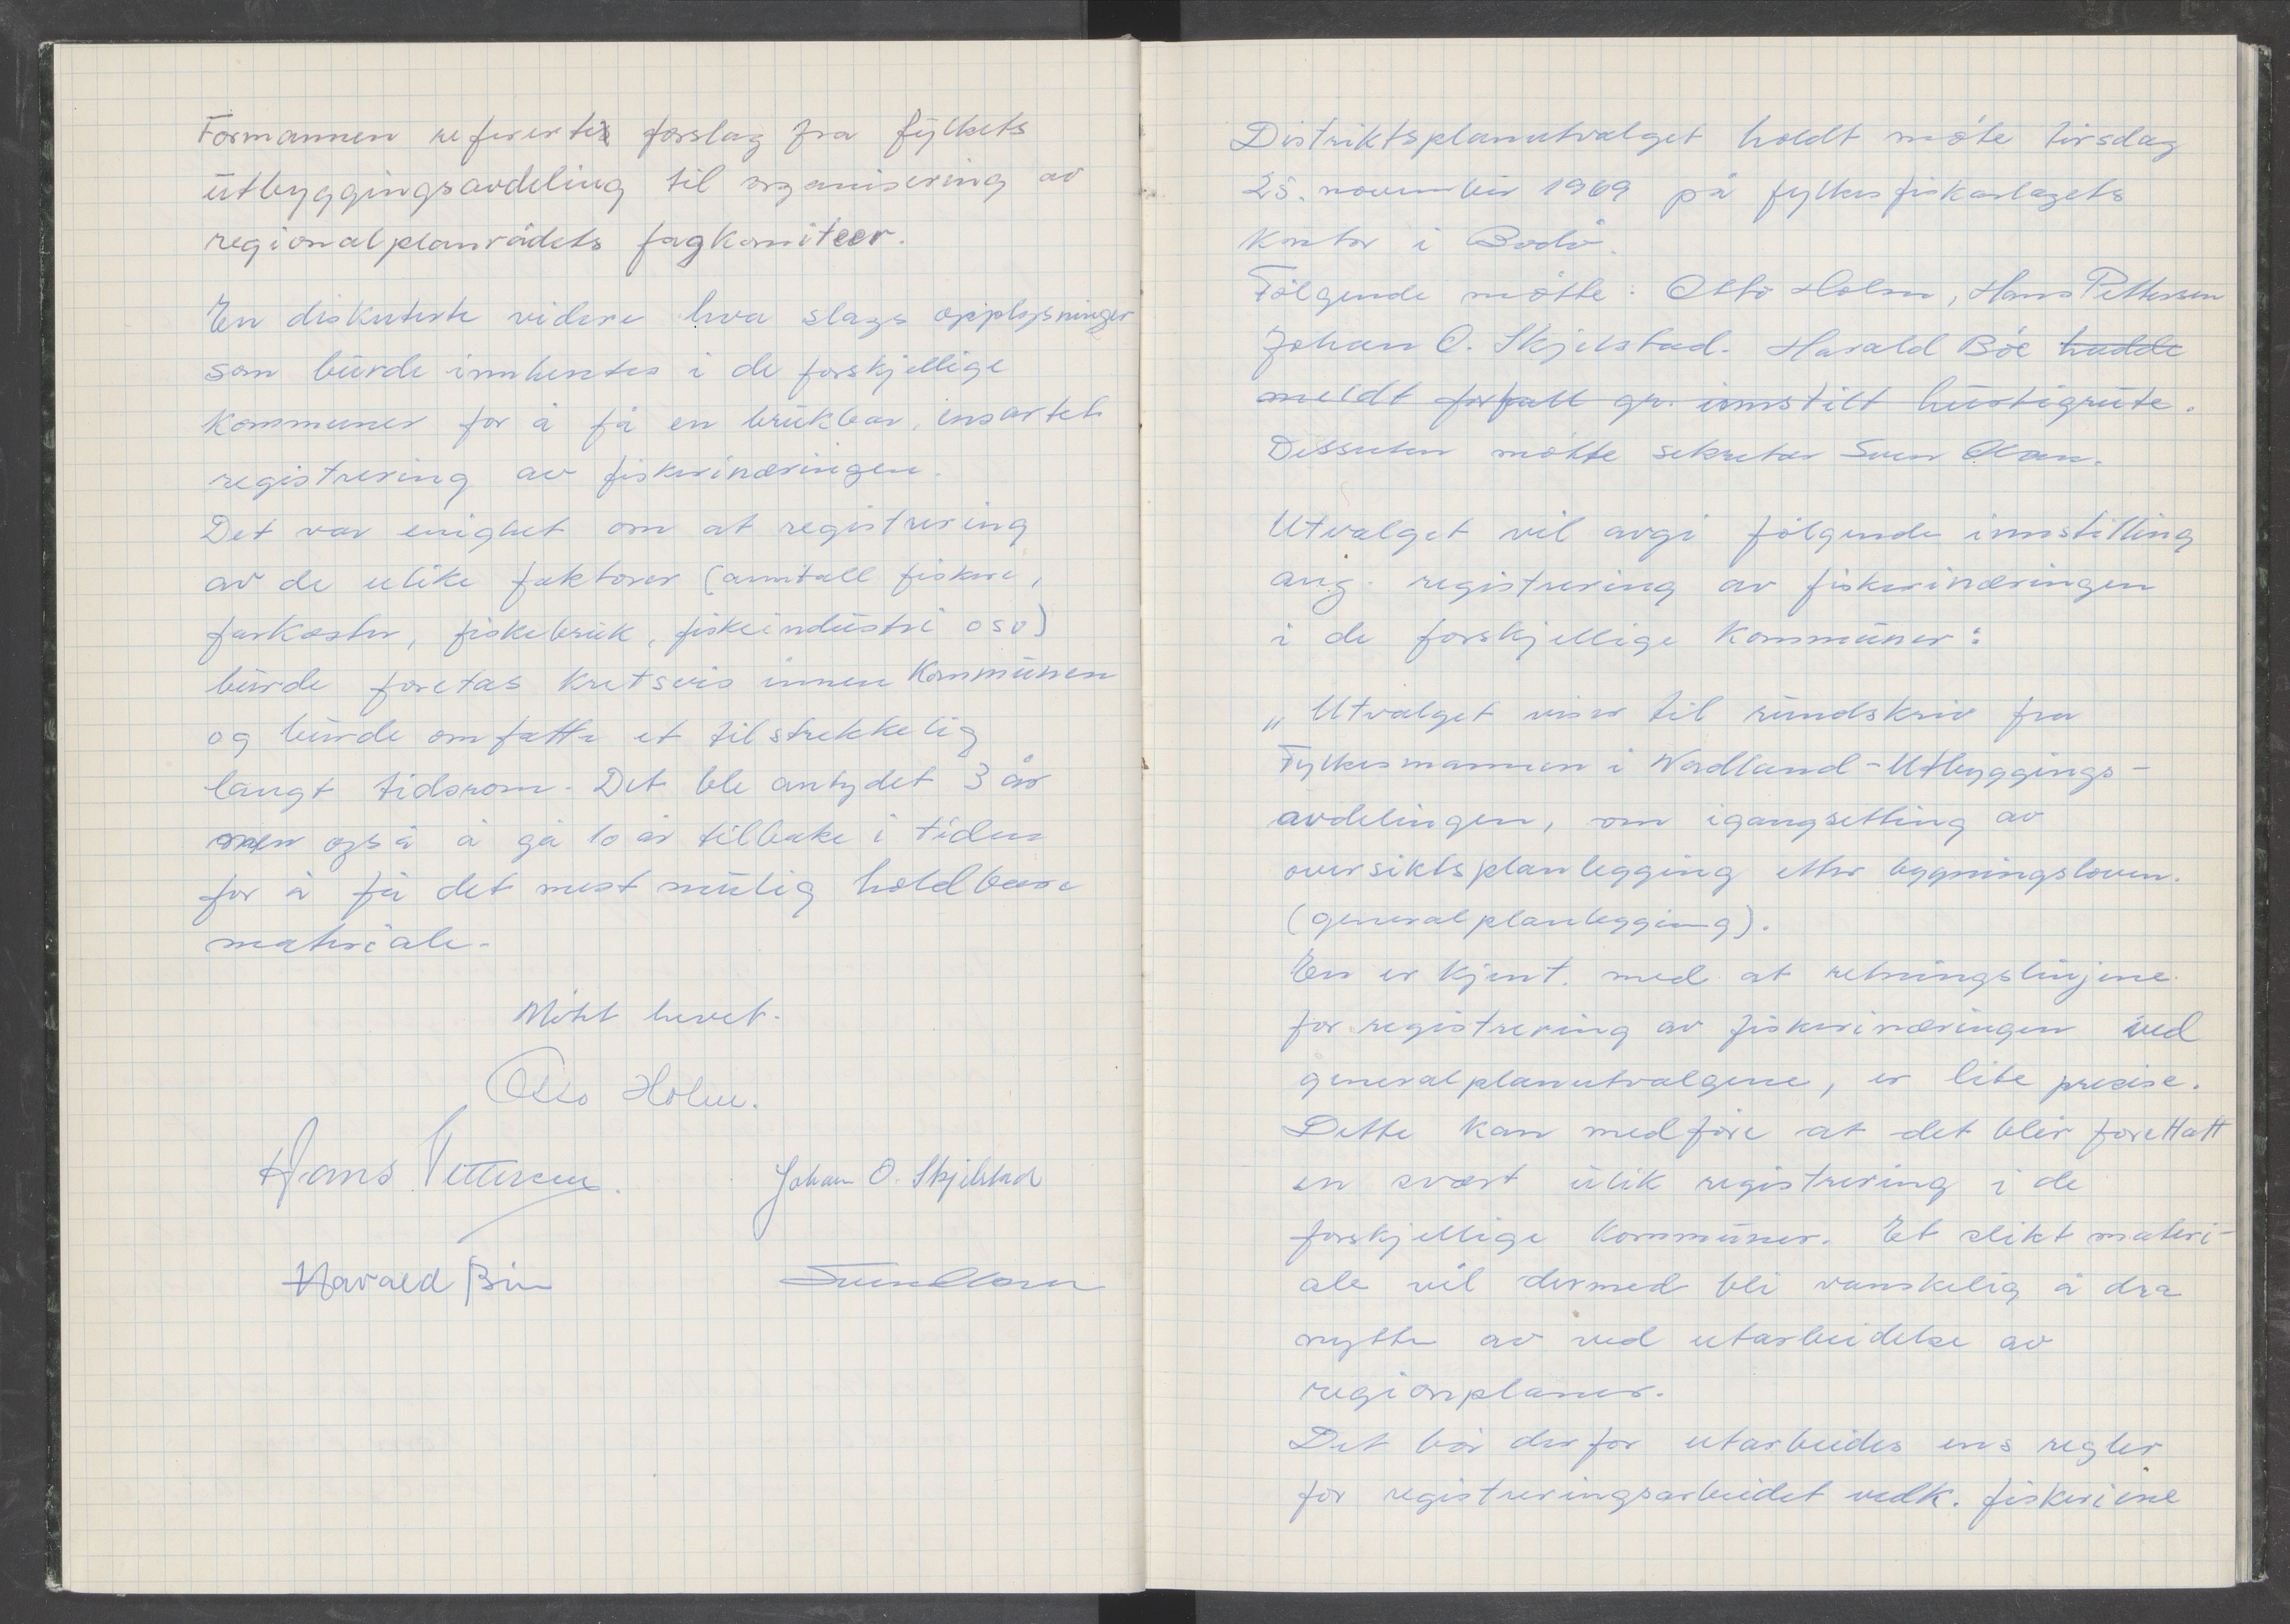 Formannen referertex forslag fra fylkets
utbyggingsavdeling til organisering av
regionalplanrådets fagkomiteer.
En diskuterte videre hva slags opplysninger
som burde innhentes i de forskjellige
kommuner for å få en brukbar, ensartet
registrering av fiskerinæringen.
Det var enighet om at registrering
av de ulike faktorer (anntall fiskere,
farkoster, fiskebruk, fiskeindustri osv)
burde foretas kretsvis innen kommunen
og burde omfatte et tilstrekkelig
langt tidsrom. Det ble antydet 3 år
men også å gå 10 år tilbake i tiden
for å få det mest mulig holdbare
materiale.
Møtet hevet.
Otto Holm.
Hans Pettersen.
Johan O. Skjelstad
Harald Bøe
Svein Olsen
Distriktsplanutvalget holdt møte tirsdag
25. november 1969 på fylkesfiskarlagets
kontor i Bodø.
Følgende møtte: Otto Holm, Hans Pettersen
Johan O. Skjelstad. Harald Bøe hadde
meldt forfall gr. innstilt hurtigrute.
Dessuten møtte sekretær Svein Olsen.
Utvalget vil avgi følgende innstilling
ang. registrering av fiskerinæringen
i de forskjellige kommuner:
„Utvalget viser til rundskriv fra
Fylkesmannen i Nordland - Utbyggings-
avdelingen, om igangsetting av
oversiktsplanlegging etter bygningsloven.
(generalplanlegging).
En er kjent med at retningslinjene
for registrering av fiskerinæringen ved
generalplanutvalgene, er lite presise.
Dette kan medføre at det blir forettatt
en svært ulik registrering i de
forskjellige kommuner. Et slikt materi-
ale vil dermed bli vanskelig å dra
nytte av ved utarbeidelse av
regionplaner.
Det bør derfor utarbeides ens regler
for registreringsarbeidet vedk. fiskeriene